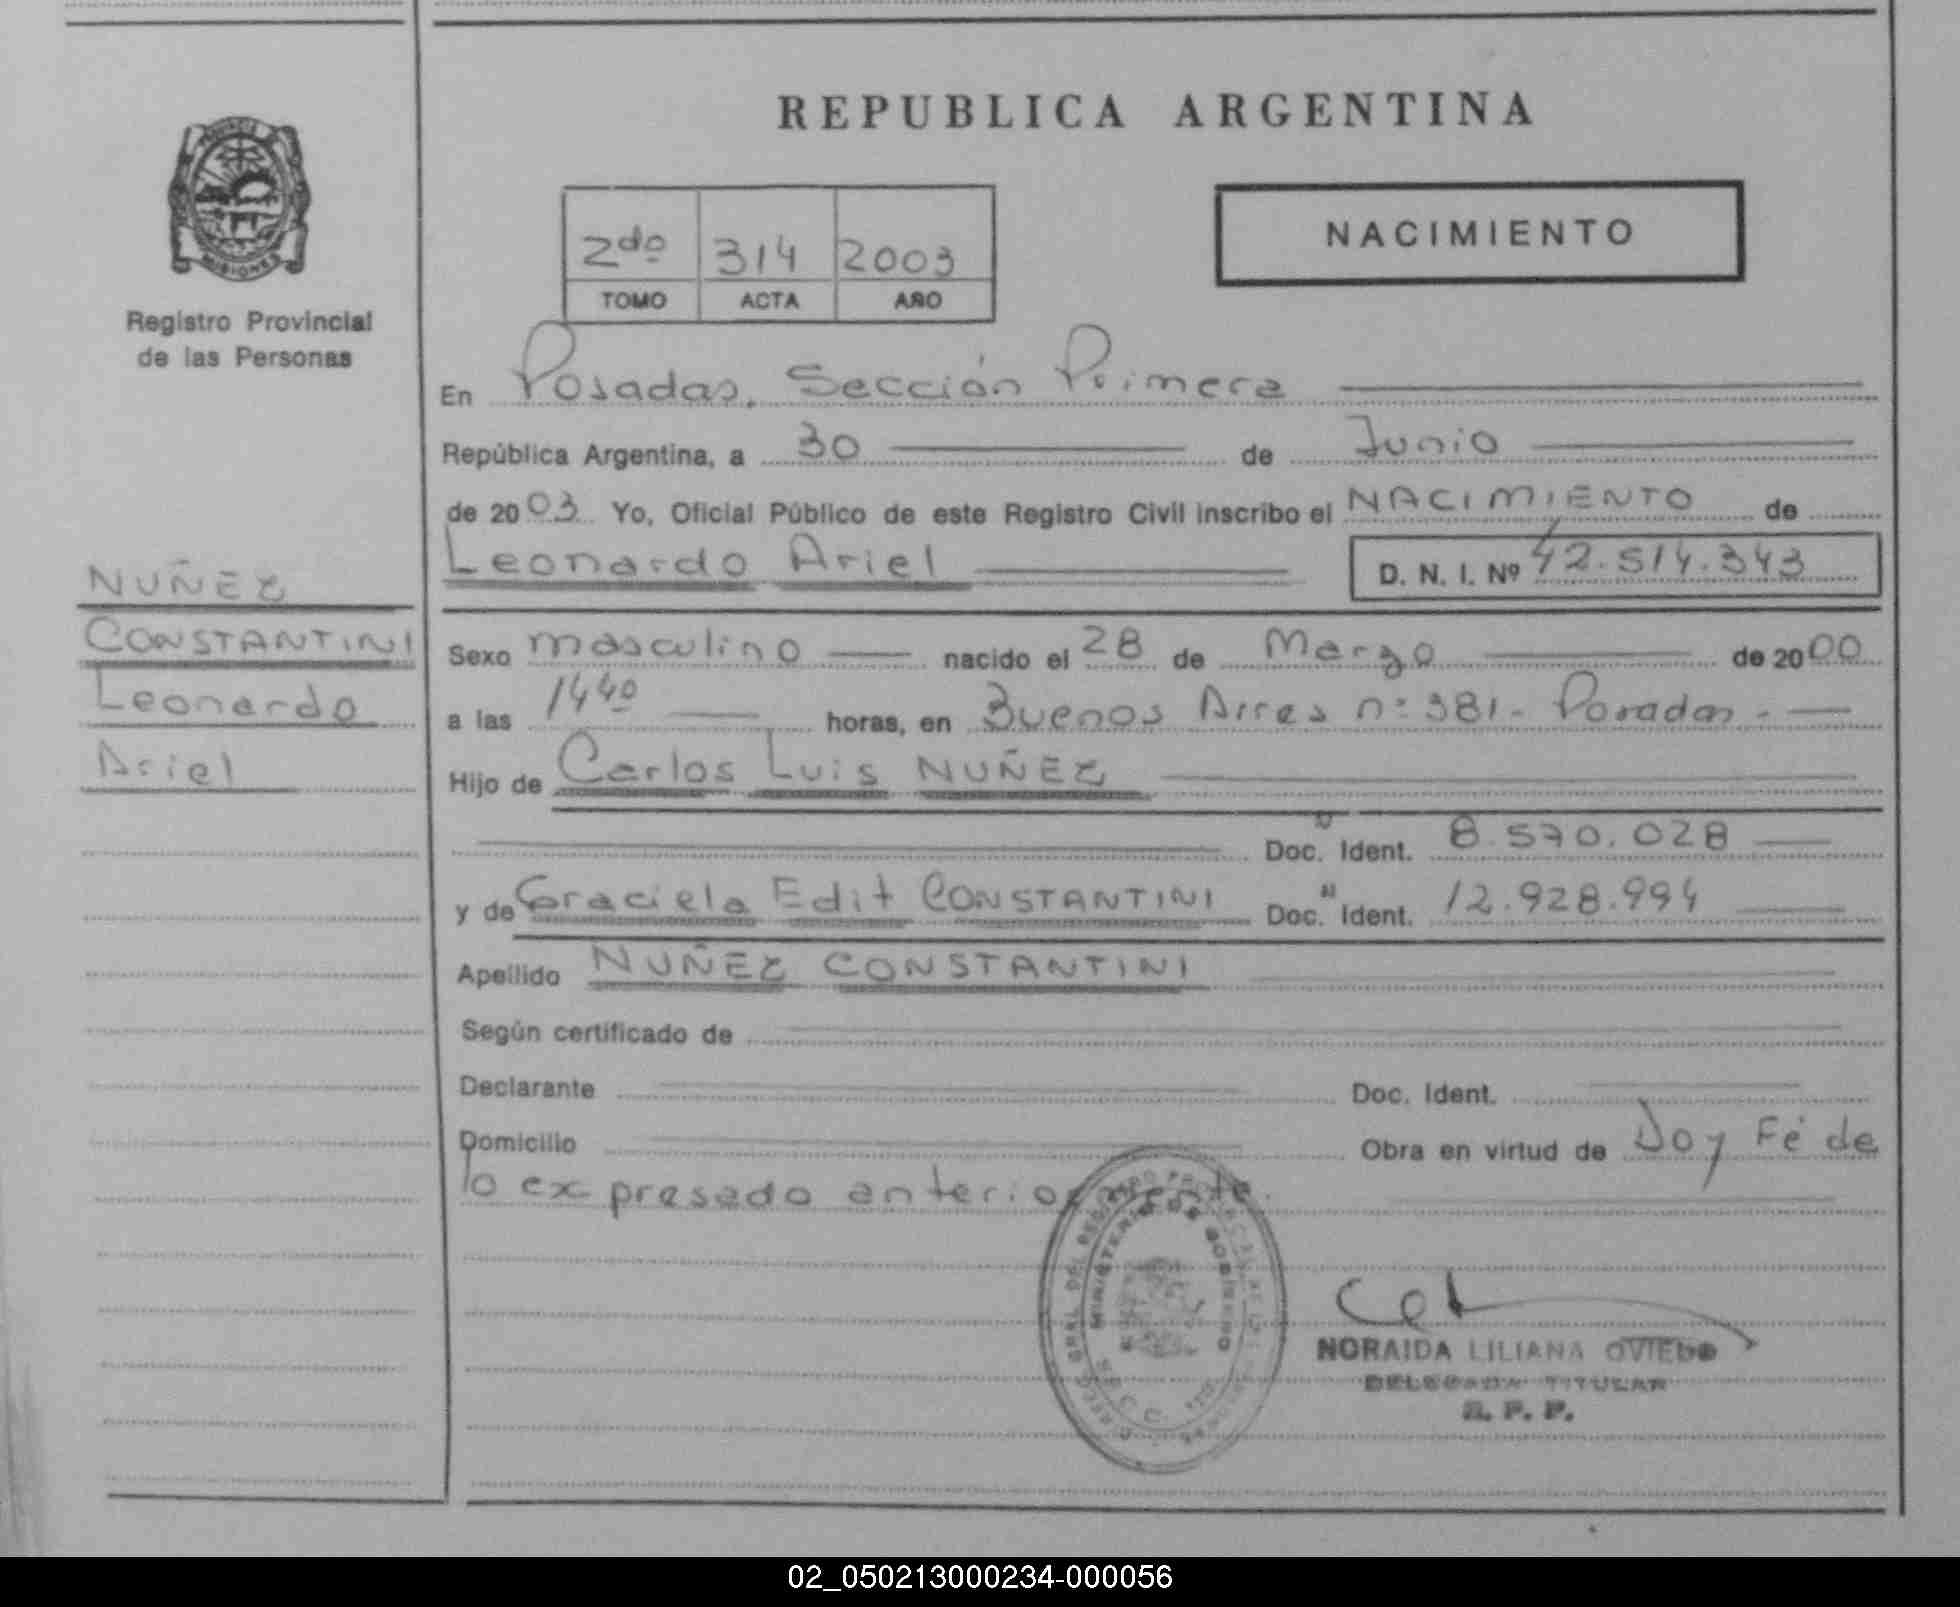 REPUBLICA ARGENTINA
MISIONES
Registro Provincial
de las Personas
NACIMIENTO
2do 314 2003
TOMO ACTA AÑO
En Posadas, Sección Primera
República Argentina, a 30 de Junio
de 2003 Yo, Oficial Público de este Registro Civil inscribo el NACIMIENTO de
Leonardo Ariel D. N. I. Nº 42.514.343
NUÑEZ
CONSTANTINI
Leonardo
Ariel
Sexo masculino nacido el 28 de Marzo de 2000
a las 1440 horas, en Buenos Aires nº 381 - Posadas -
Hijo de Carlos Luis NUÑEZ
Doc. Ident. 8.570.028
y de Graciela Edit CONSTANTINI Doc. Ident. 12.928.994
Apellido NUÑEZ CONSTANTINI
Según certificado de
Declarante Doc. Ident.
Domicilio Obra en virtud de Doy Fé de
lo expresado anteriormente.
MINISTERIO DE GOBIERNO
NORAIDA LILIANA OVIEDO
DELEGADA TITULAR
R. P. P.
02_050213000234-000056